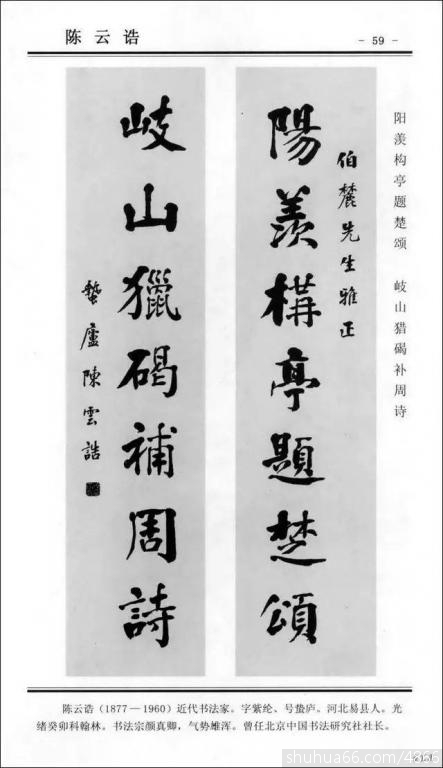 陈云诰
- 59 -
阳羡构亭题楚颂　岐山猎碣补周诗
伯麓先生雅正
陽羨構亭題楚頌
岐山獵碣補周詩
蟄廬陳雲誥
陈云诰（1877—1960）近代书法家。字紫纶、号蛰庐。河北易县人。光
绪癸卯科翰林。书法宗颜真卿，气势雄浑。曾任北京中国书法研究社社长。